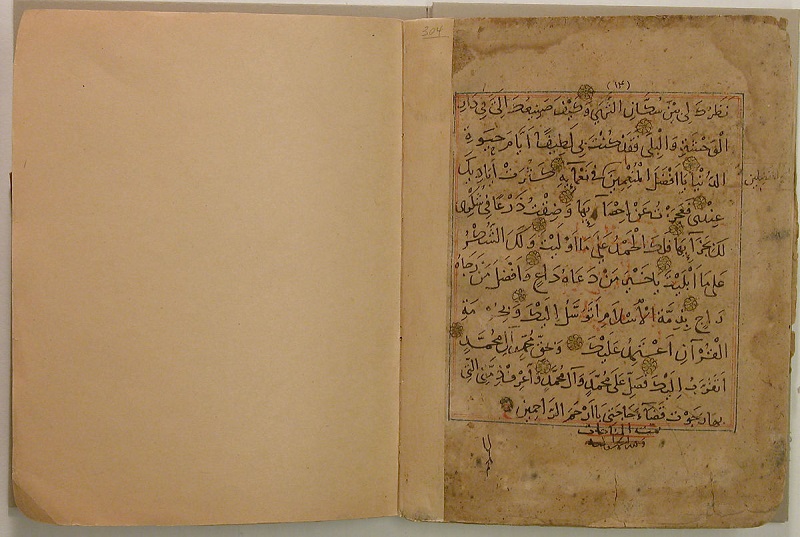 304
(١٤)
نَظَرُكَ لِي بَيْنَ سُكَّانِ الثَّرَى وَكَيْفَ صَنِيعُكَ إِلَيَّ فِي دَارِ
الْوَحْشَةِ وَالْبِلَى فَقَدْ كُنْتَ بِي لَطِيفًا أَيَّامَ حَيٰوةِ
الدُّنْيَا يَا أَفْضَلَ الْمُنْعِمِينَ فِي نَعْمَآئِهِ كَثُرَتْ أَيَادِيكَ
عِنْدِي فَعَجَزْتُ عَنْ إِحْصَآئِهَا وَضِقْتُ ذَرْعًا فِي شُكْرِي
لَكَ بِجَزَآئِهَا فَلَكَ الْحَمْدُ عَلَى مَا أَوْلَيْتَ وَلَكَ الشُّكْرُ
عَلَى مَا أَبْلَيْتَ يَا خَيْرَ مَنْ دَعَاهُ دَاعٍ وَأَفْضَلَ مَنْ رَجَاهُ
رَاجٍ بِذِمَّةِ الْإِسْلَامِ أَتَوَسَّلُ إِلَيْكَ وَبِحُرْمَةِ
الْقُرْآنِ أَعْتَمِدُ عَلَيْكَ وَبِحَقِّ مُحَمَّدٍ وَآلِ مُحَمَّدٍ
أَتَقَرَّبُ إِلَيْكَ فَصَلِّ عَلَى مُحَمَّدٍ وَآلِ مُحَمَّدٍ وَاعْرِفْ ذِمَّتِيَ الَّتِي
بِهَا رَجَوْتُ قَضَآءَ حَاجَتِي يَا أَرْحَمَ الرَّاحِمِينَ
تمت المناجات